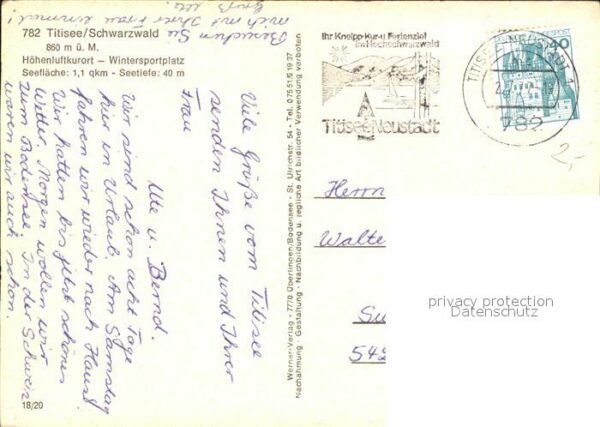 782 Titisee/Schwarzwald
860 m ü. M.
Höhenluftkurort — Wintersportplatz
Seefläche: 1,1 qkm - Seetiefe: 40 m
Viele Grüße vom Titisee
senden Ihnen und Ihrer
Frau
Ute u. Bernd.
Wir sind schon acht Tage
hier in Urlaub. Am Samstag
fahren wir wieder nach Hause
Wir hatten bis jetzt schönes
Wetter. Morgen wollen wir
zum Bodensee. In der Schweiz
waren wir auch schon.
Besuchen Sie
mich mit Ihrer Frau einmal!
18/20
Werner-Verlag - 7770 Überlingen/Bodensee - St. Ulrichstr. 54 - Tel. 07551/51937
Nachahmung - Gestaltung - Nachbildung u. jegliche Art bildlicher Verwendung verboten
Ihr Kneipp-Kur-u. Ferienziel
im Hochschwarzwald
Titisee-Neustadt
TITISEE-NEUSTADT
782
40
2,-
Herrn
Walte
542
privacy protection
Datenschutz